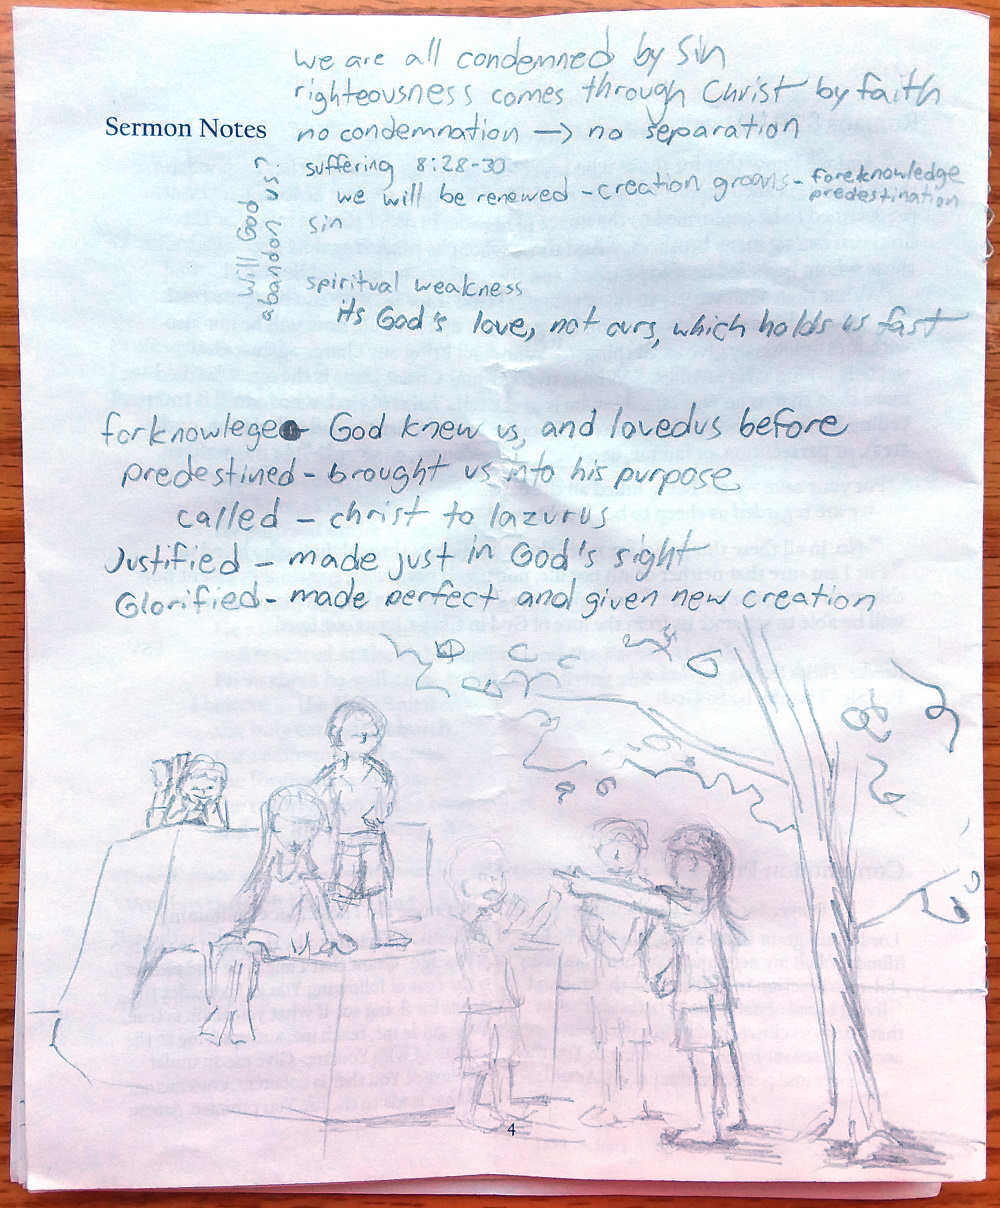 we are all condemned by sin
righteousness comes through Christ by faith
Sermon Notes
no condemnation → no separation
Will God
abandon us?
suffering 8:28-30
we will be renewed - creation groans - foreknowledge
predestination
sin
spiritual weakness
its God's love, not ours, which holds us fast
forknowlege - God knew us, and lovedus before
predestined - brought us into his purpose
called - christ to lazurus
Justified - made just in God's sight
Glorified - made perfect and given new creation
4